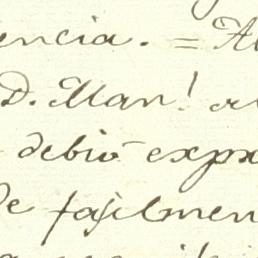 encia. = A
D. Man! a
debió expr
de fasilmen